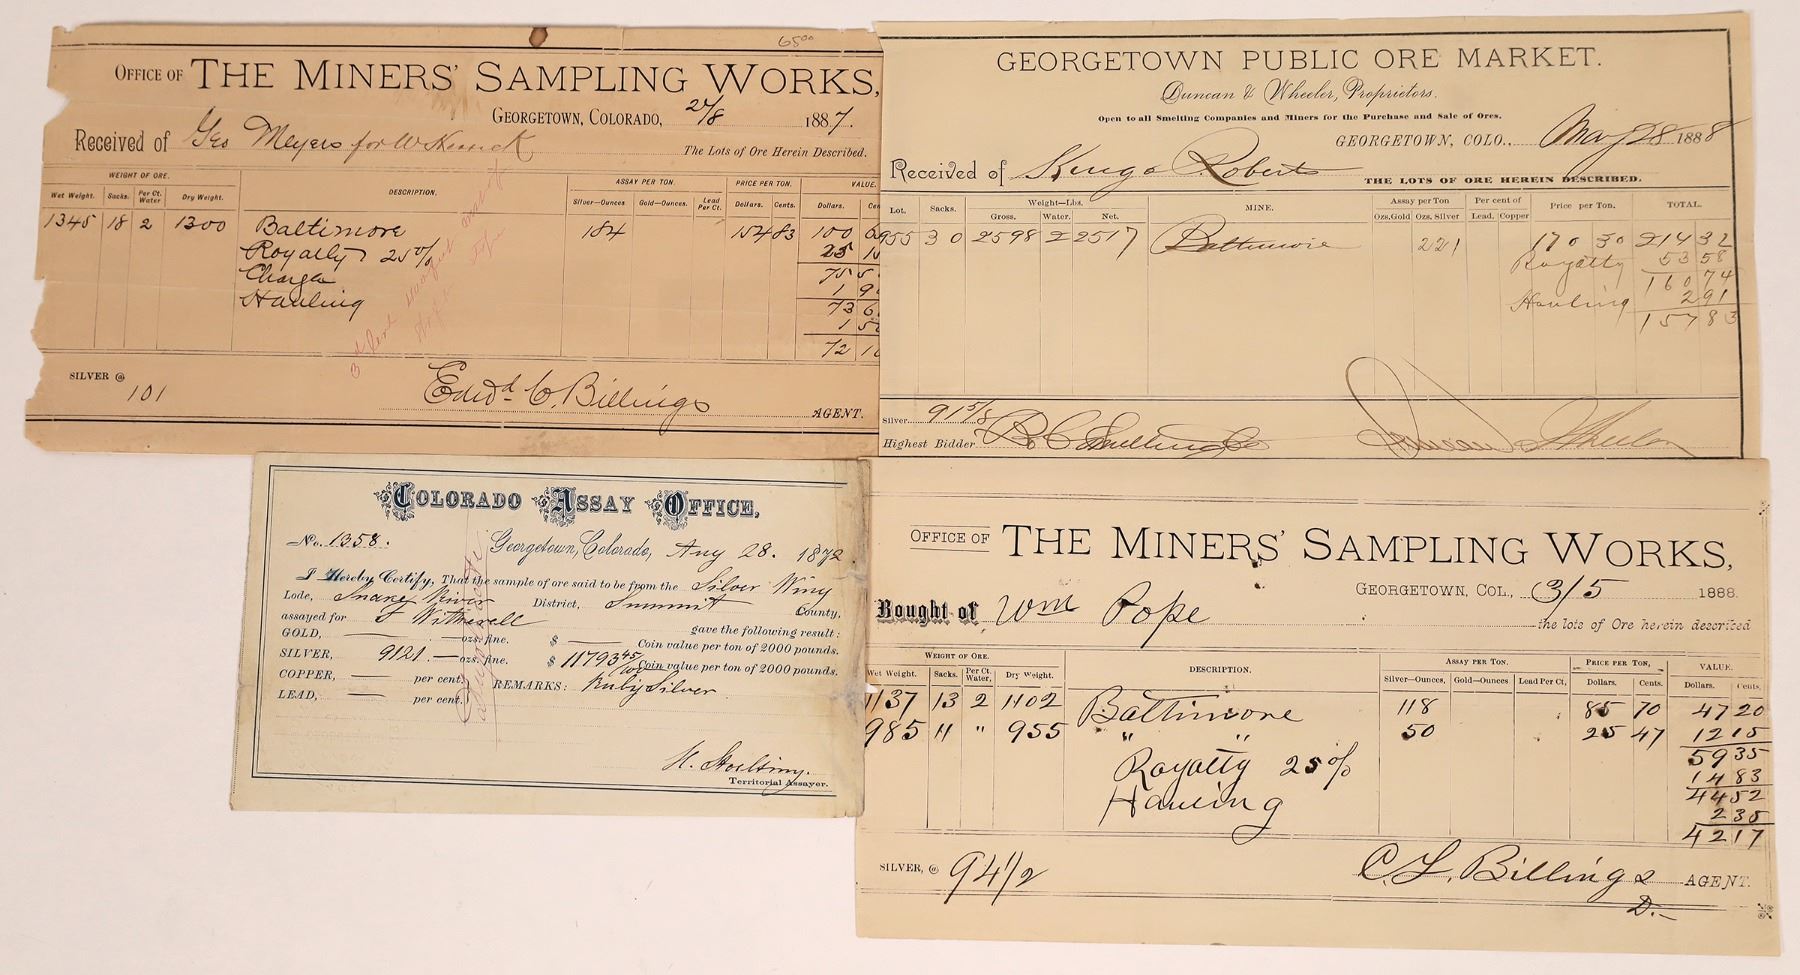 65⁰⁰
OFFICE OF THE MINERS' SAMPLING WORKS,
GEORGETOWN, COLORADO, 2/8 1887.
Received of Geo Meyers for W The Lots of Ore Herein Described.
WEIGHT OF ORE. DESCRIPTION. ASSAY PER TON. PRICE PER TON. VALUE.
Wet Weight. Sacks. Per Ct. Water Dry Weight. Silver—Ounces. Gold—Ounces. Lead Per Ct. Dollars. Cents. Dollars. Cen
1345 18 2 1300 Baltimore 184 154 83 100 6
Royalty 25% 25 1
75 5
Charge 1 9
Hauling 73 6
1 50
72 10
SILVER @ 101
Edwd C. Billings AGENT.
GEORGETOWN PUBLIC ORE MARKET.
Duncan & Wheeler, Proprietors.
Open to all Smelting Companies and Miners for the Purchase and Sale of Ores.
GEORGETOWN, COLO., May 28 1888
Received of Roberts THE LOTS OF ORE HEREIN DESCRIBED.
Lot. Sacks. Weight—Lbs. MINE. Assay per Ton Per cent of Price per Ton. TOTAL.
Gross. Water. Net. Ozs.Gold Ozs. Silver Lead. Copper
955 30 2598 2 2517 Baltimore 221 170 30 214 32
Royalty 53 58
160 74
Hauling 2 91
157 83
Silver 91 5/8
Highest Bidder
Duncan & Wheeler
COLORADO ASSAY OFFICE,
No. 1358. Georgetown, Colorado, Aug 28. 1872
I Hereby Certify, That the sample of ore said to be from the Silver Wing
Lode, Snake River District, Summit County,
assayed for J Witherell gave the following result:
GOLD, — ozs. fine. $ — Coin value per ton of 2000 pounds.
SILVER, 9121. — ozs. fine. $ 11793 45/100 Coin value per ton of 2000 pounds.
COPPER, — per cent. REMARKS: Ruby Silver
LEAD, — per cent.
Territorial Assayer.
OFFICE OF THE MINERS' SAMPLING WORKS,
GEORGETOWN, COL., 3/5 1888.
Bought of Wm Pope the lots of Ore herein described
WEIGHT OF ORE. DESCRIPTION. ASSAY PER TON. PRICE PER TON, VALUE.
Wet Weight. Sacks. Per Ct. Water, Dry Weight. Silver—Ounces, Gold—Ounces Lead Per Ct, Dollars. Cents. Dollars. Cents,
1137 13 2 1102 Baltimore 118 85 70 47 20
985 11 " 955 " " 50 25 47 12 15
59 35
Royalty 25% 14 83
44 52
Hauling 2 35
42 17
SILVER, @ 94 1/2 C. L. Billings AGENT.
D.—